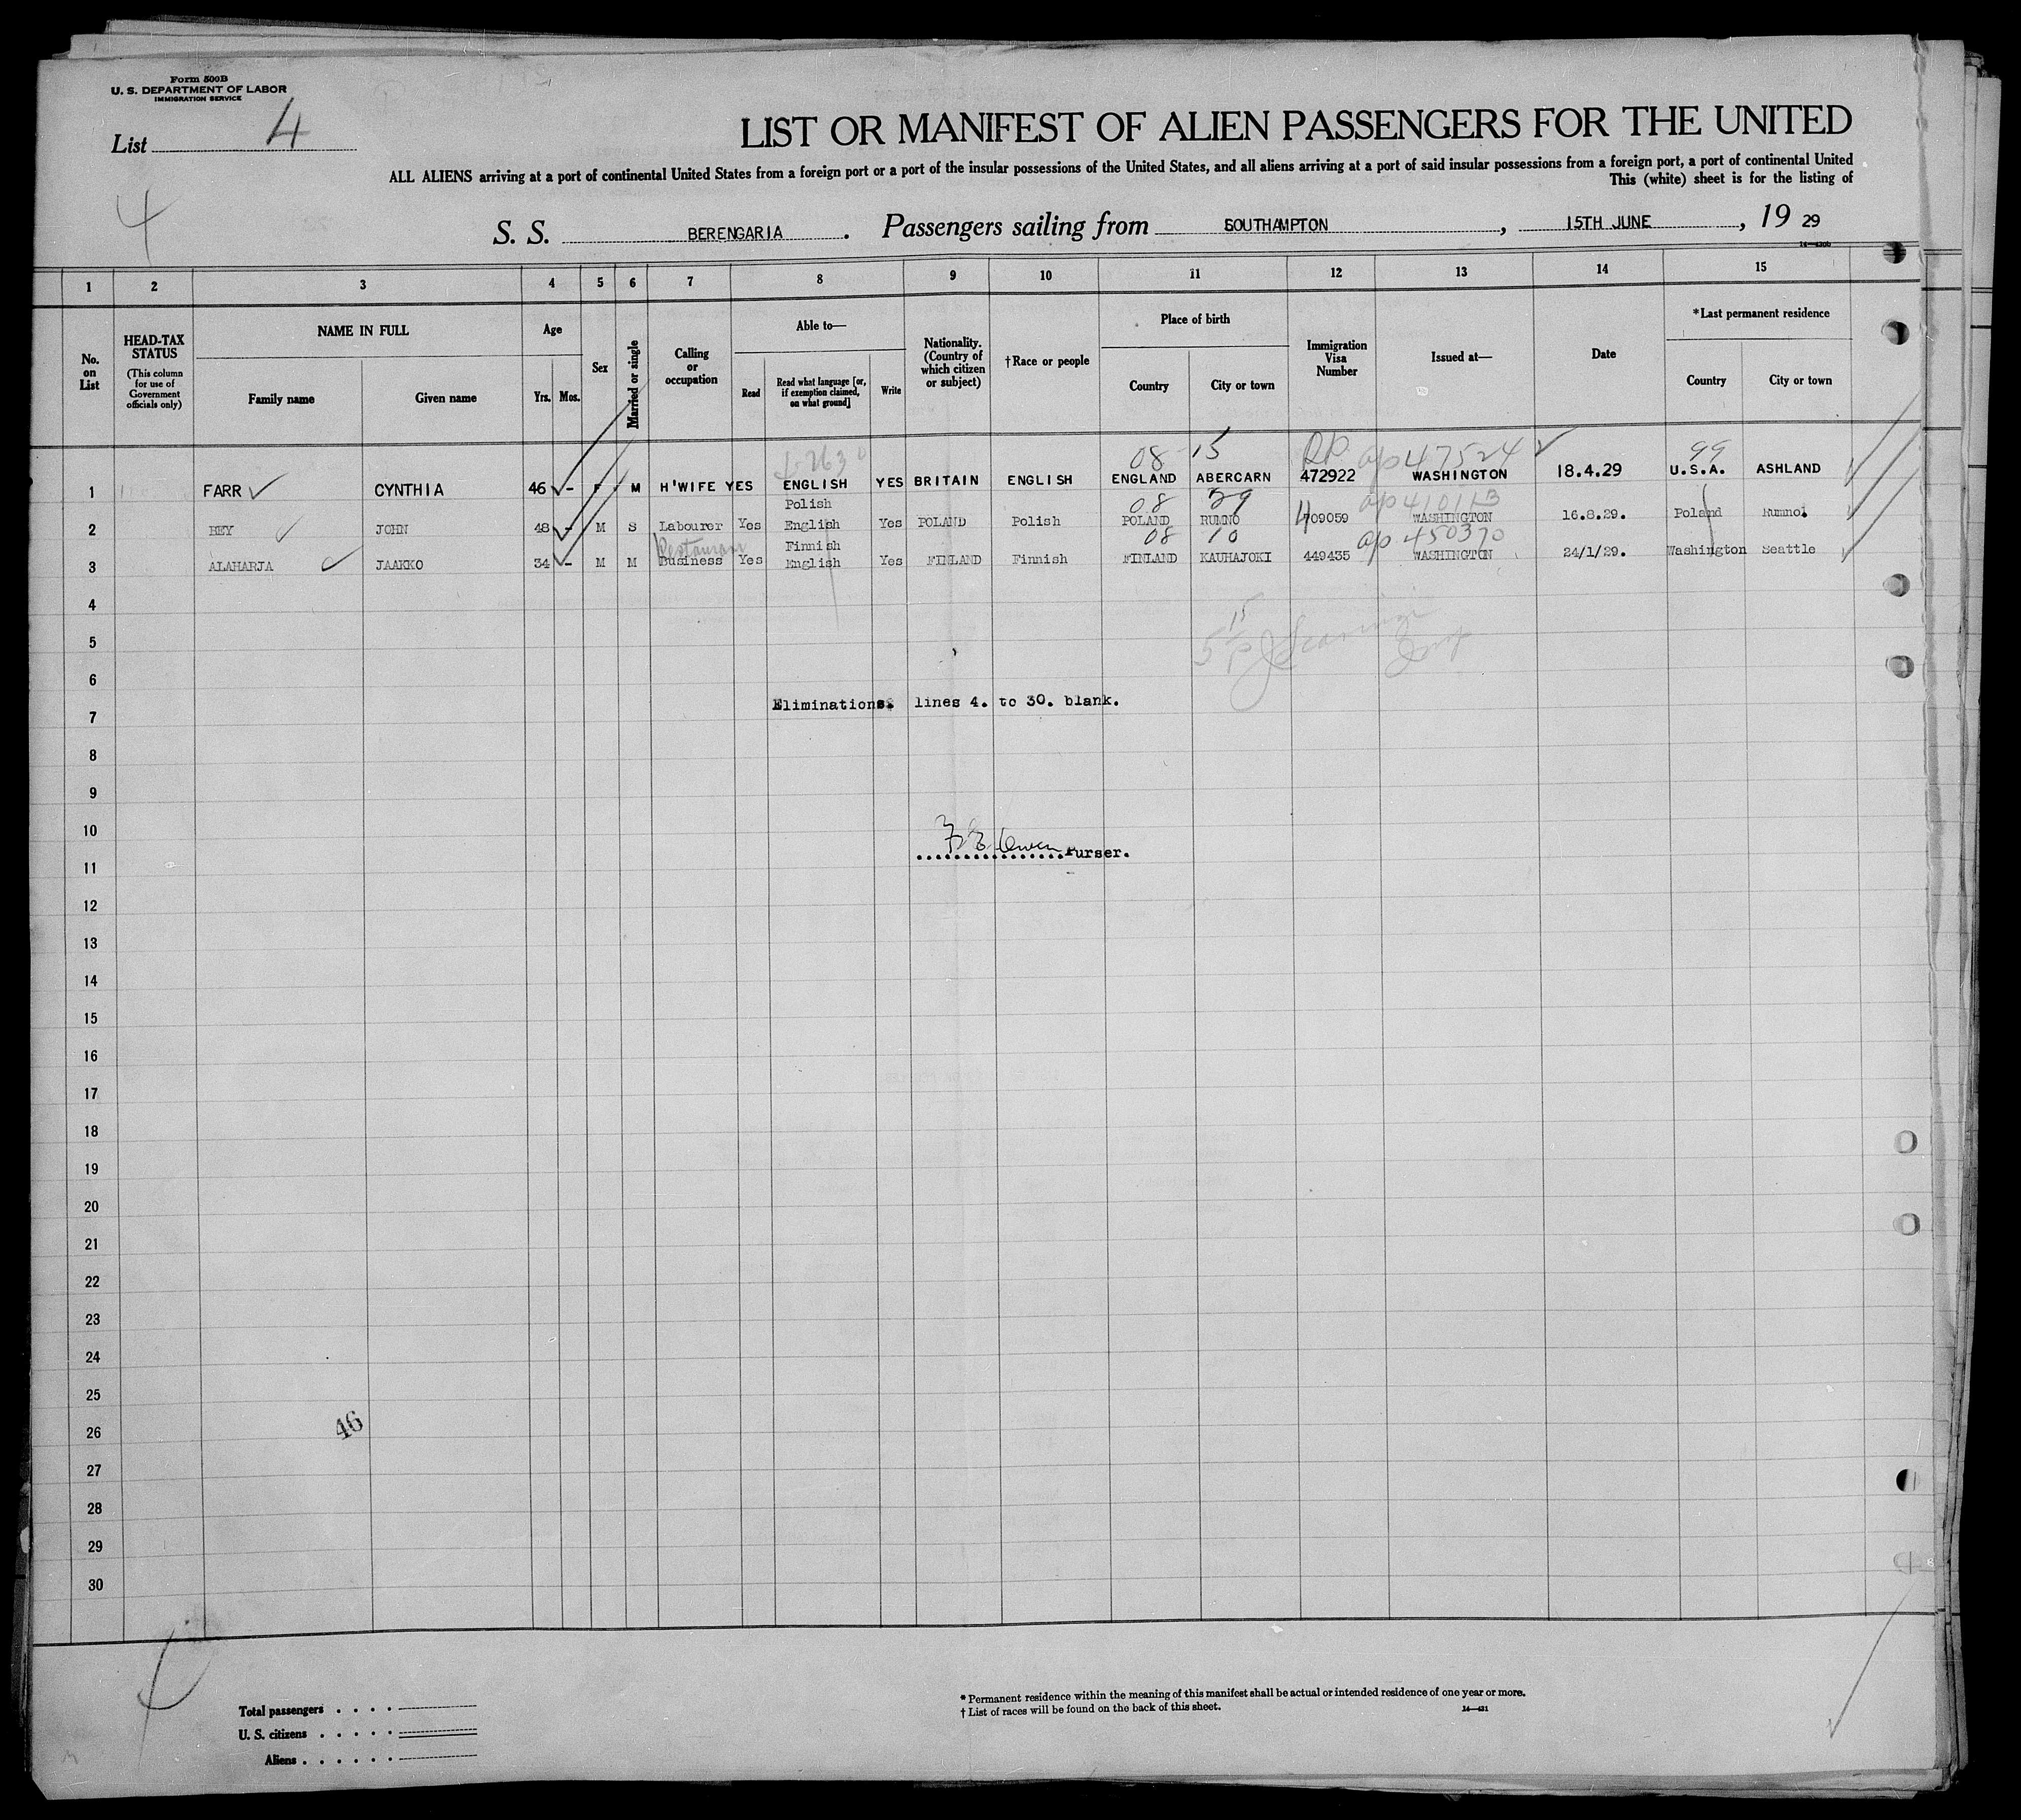 Form 500B
U. S. DEPARTMENT OF LABOR
IMMIGRATION SERVICE
List 4
4
LIST OR MANIFEST OF ALIEN PASSENGERS FOR THE UNITED
ALL ALIENS arriving at a port of continental United States from a foreign port or a port of the insular possessions of the United States, and all aliens arriving at a port of said insular possessions from a foreign port, a port of continental United
This (white) sheet is for the listing of
S. S. BERENGARIA. Passengers sailing from SOUTHAMPTON, 15TH JUNE, 19 29
1 2 3 4 5 6 7 8 9 10 11 12 13 14 15
No. on List
HEAD-TAX STATUS (This column for use of Government officials only)
NAME IN FULL
Family name Given name
Age
Yrs. Mos.
Sex
Married or single
Calling or occupation
Able to—
Read
Read what language [or, if exemption claimed, on what ground]
Write
Nationality. (Country of which citizen or subject)
†Race or people
Place of birth
Country City or town
Immigration Visa Number
Issued at—
Date
*Last permanent residence
Country City or town
08 15 ap 47524 99
1 FARR CYNTHIA 46 - F M H'WIFE YES ENGLISH YES BRITAIN ENGLISH ENGLAND ABERCARN 472922 WASHINGTON 18.4.29 U.S.A. ASHLAND
Polish 08 29
2 BEY JOHN 48 - M S Labourer Yes English Yes POLAND Polish POLAND RUMNO 409059 WASHINGTON 16.8.29. Poland Rumno.
Restaurant Finnish 08 10 ap 450370
3 ALAHARJA JAAKKO 34 - M M Business Yes English Yes FINLAND Finnish FINLAND KAUHAJOKI 449435 WASHINGTON 24/1/29. Washington Seattle
4
5
6
Eliminations. lines 4. to 30. blank.
7
8
9
10
Purser.
11
12
13
14
15
16
17
18
19
20
21
22
23
24
25
26
46
27
28
29
30
Total passengers . . . .
U. S. citizens . . . . .
Aliens . . . . . .
* Permanent residence within the meaning of this manifest shall be actual or intended residence of one year or more.
† List of races will be found on the back of this sheet.
14—431